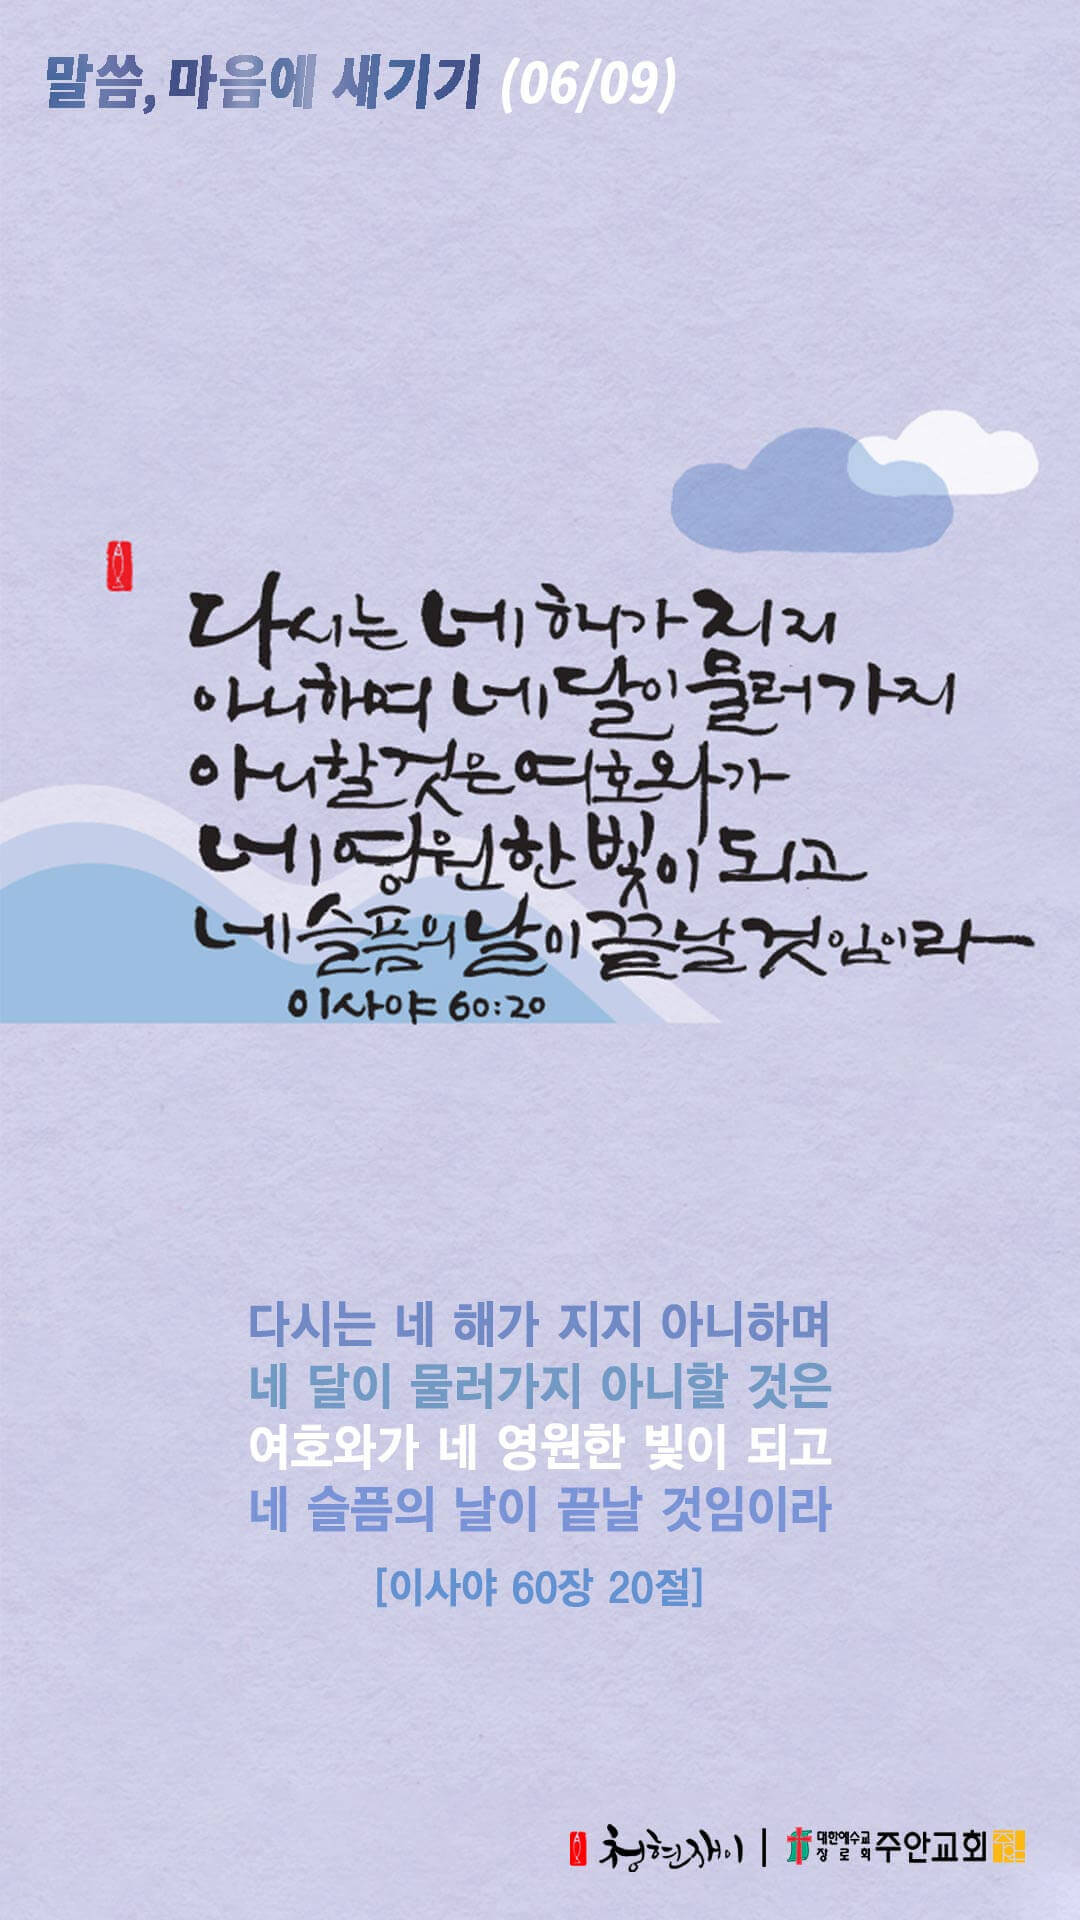 말씀, 마음에 새기기 (06/09)
다시는 네 해가 지지
아니하며 네 달이 물러가지
아니할 것은 여호와가
네 영원한 빛이 되고
네 슬픔의 날이 끝날 것임이라
이사야 60:20
다시는 네 해가 지지 아니하며
네 달이 물러가지 아니할 것은
여호와가 네 영원한 빛이 되고
네 슬픔의 날이 끝날 것임이라
[이사야 60장 20절]
청현재이 | 대한예수교
장로회 주안교회